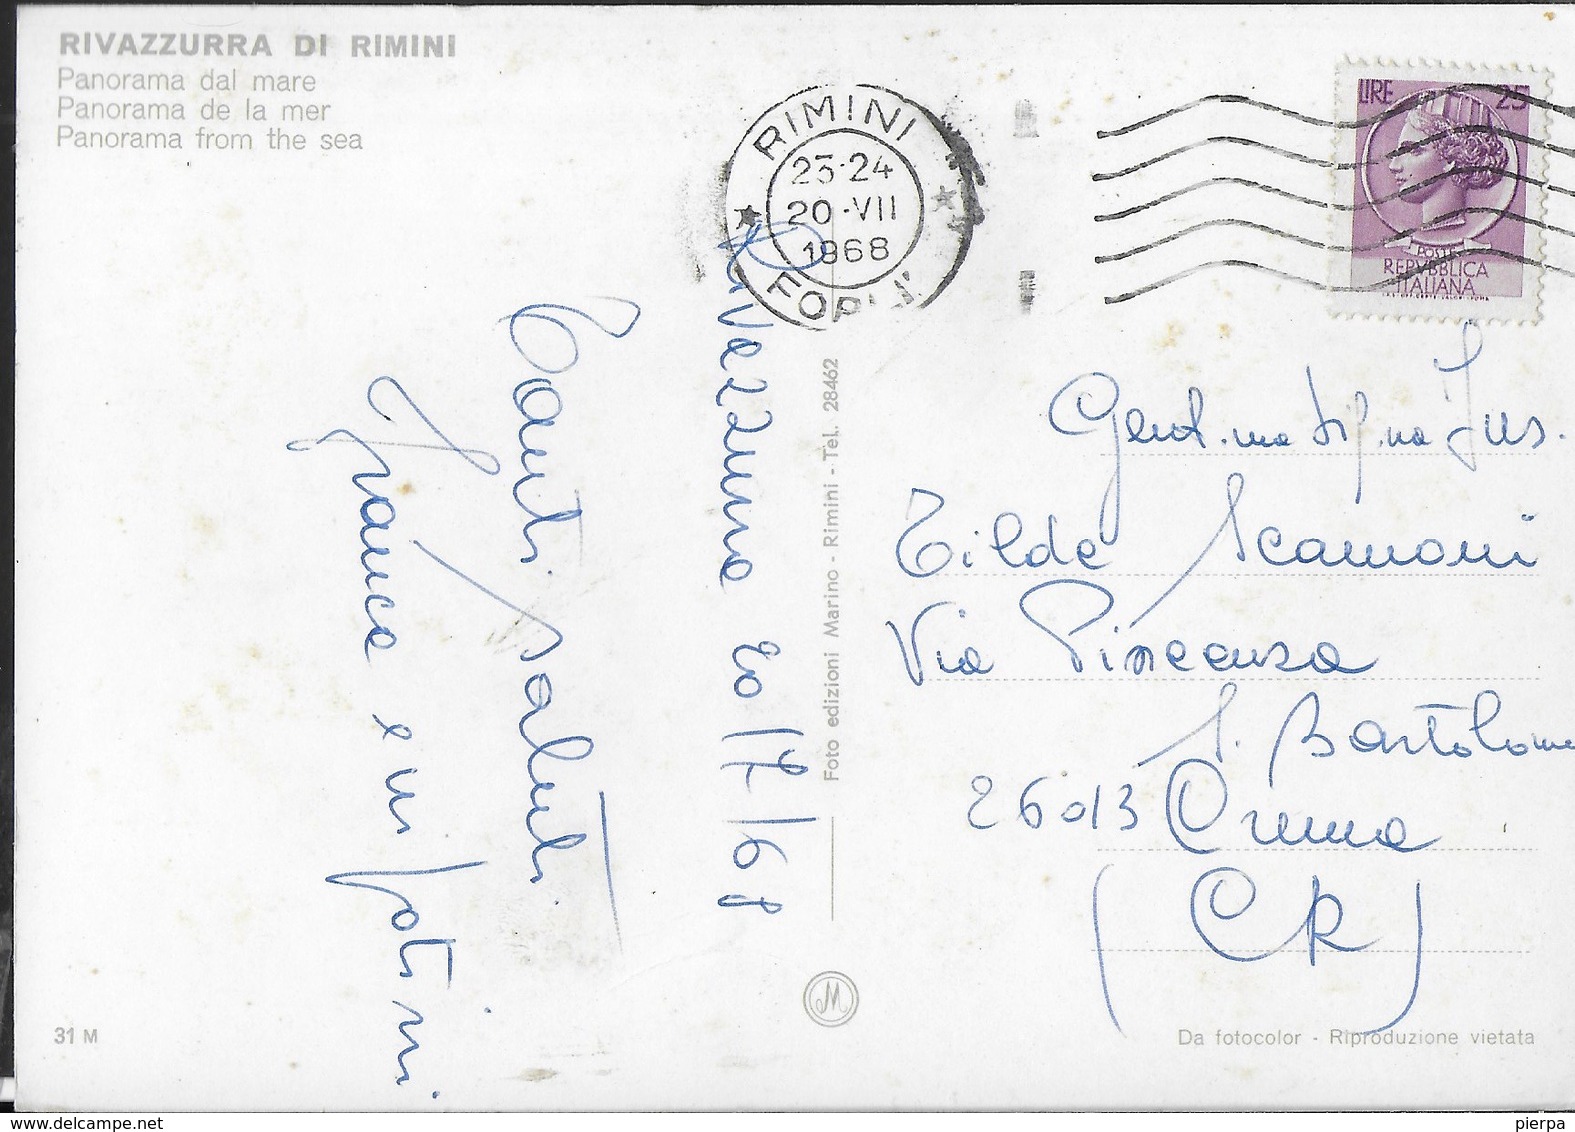 RIVAZZURRA DI RIMINI
Panorama dal mare
Panorama de la mer
Panorama from the sea
RIMINI
23-24
20·VII
1968
FORLI'
LIRE 25
POSTE
REPVBBLICA
ITALIANA
Rivazzurra 20/7/68
Tanti saluti
Franca e nipotini
Foto edizioni Marino - Rimini - Tel. 28462
Gent.ma Sig.na Ins.
Tilde Scamoni
Via Piacenza
S. Bartolome
26013 Crema
(CR)
M
31 M
Da fotocolor - Riproduzione vietata
www.delcampe.net
pierpa